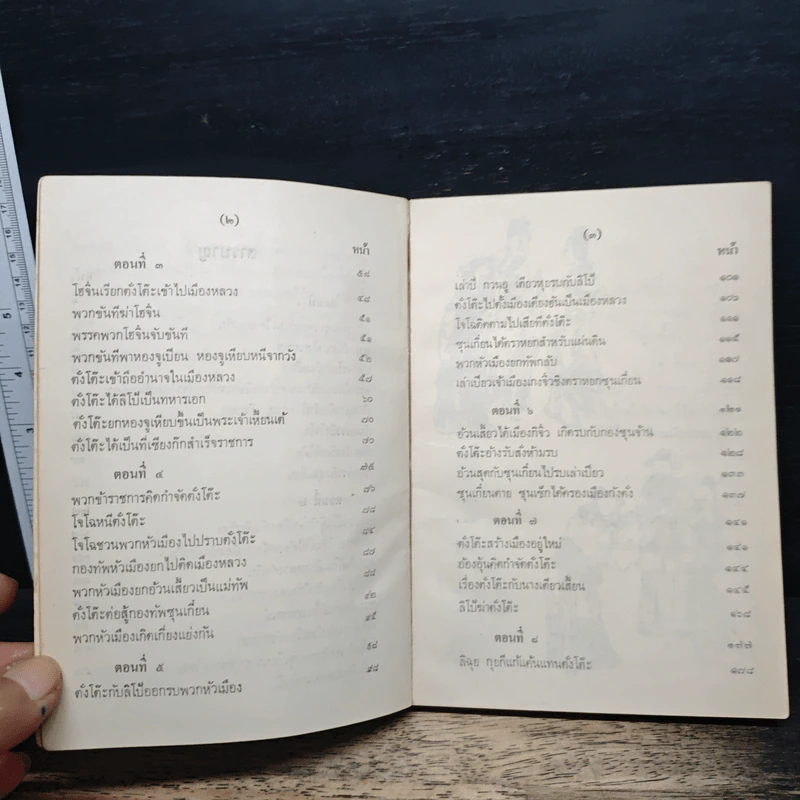 (๒)
หน้า
ตอนที่ ๓
๕๘
โฮจิ๋นเรียกตั๋งโต๊ะเข้าไปเมืองหลวง
๔๘
พวกขันทีฆ่าโฮจิ๋น
๕๑
พรรคพวกโฮจิ๋นจับขันที
๕๑
พวกขันทีพาหองจูเปียน หองจูเหียบหนีจากวัง
๕๒
ตั๋งโต๊ะเข้าถืออำนาจในเมืองหลวง
๕๗
ตั๋งโต๊ะได้ลิโป้เป็นทหารเอก
๖๐
ตั๋งโต๊ะยกหองจูเหียบขึ้นเป็นพระเจ้าเหี้ยนเต้
๗๐
ตั๋งโต๊ะได้เป็นที่เซียงก๊กสำเร็จราชการ
๗๐
ตอนที่ ๔
๗๕
พวกข้าราชการคิดกำจัดตั๋งโต๊ะ
๗๖
โจโฉหนีตั๋งโต๊ะ
โจโฉชวนพวกหัวเมืองไปปราบตั๋งโต๊ะ
กองทัพหัวเมืองยกไปตีเมืองหลวง
พวกหัวเมืองยกอ้วนเสี้ยวเป็นแม่ทัพ
ตั๋งโต๊ะต่อสู้กองทัพซุนเกี๋ยน
พวกหัวเมืองเกิดเกี่ยงแย่งกัน
ตอนที่ ๕
ตั๋งโต๊ะกับลิโป้ออกรบพวกหัวเมือง
(๓)
หน้า
เล่าปี่ กวนอู เตียวหุยรบกับลิโป้
๑๐๑
ตั๋งโต๊ะไปตั้งเมืองเตียงฮันเป็นเมืองหลวง
๑๐๖
โจโฉติดตามไปเสียทีตั๋งโต๊ะ
ซุนเกี๋ยนได้ตราหยกสำหรับแผ่นดิน
๑๑๕
พวกหัวเมืองยกทัพกลับ
๑๑๗
เล่าเปียวเจ้าเมืองเกงจิ๋วชิงตราหยกซุนเกี๋ยน
๑๑๘
ตอนที่ ๖
๑๒๑
อ้วนเสี้ยวได้เมืองกิจิ๋ว เกิดรบกับกองซุนจ้าน
๑๒๒
ตั๋งโต๊ะอ้างรับสั่งห้ามรบ
๑๒๘
อ้วนสุดกับซุนเกี๋ยนไปรบเล่าเปียว
๑๓๓
ซุนเกี๋ยนตาย ซุนเซ็กได้ครองเมืองกังตั๋ง
๑๓๗
ตอนที่ ๗
๑๔๑
ตั๋งโต๊ะสร้างเมืองอยู่ใหม่
๑๔๑
อ้องอุ้นคิดกำจัดตั๋งโต๊ะ
๑๔๕
เรื่องตั๋งโต๊ะกับนางเตียวเสี้ยน
๑๔๕
ลิโป้ฆ่าตั๋งโต๊ะ
๑๖๘
ตอนที่ ๘
๑๗๗
ลิฉุย กุยกีแก้แค้นแทนตั๋งโต๊ะ
๑๗๘